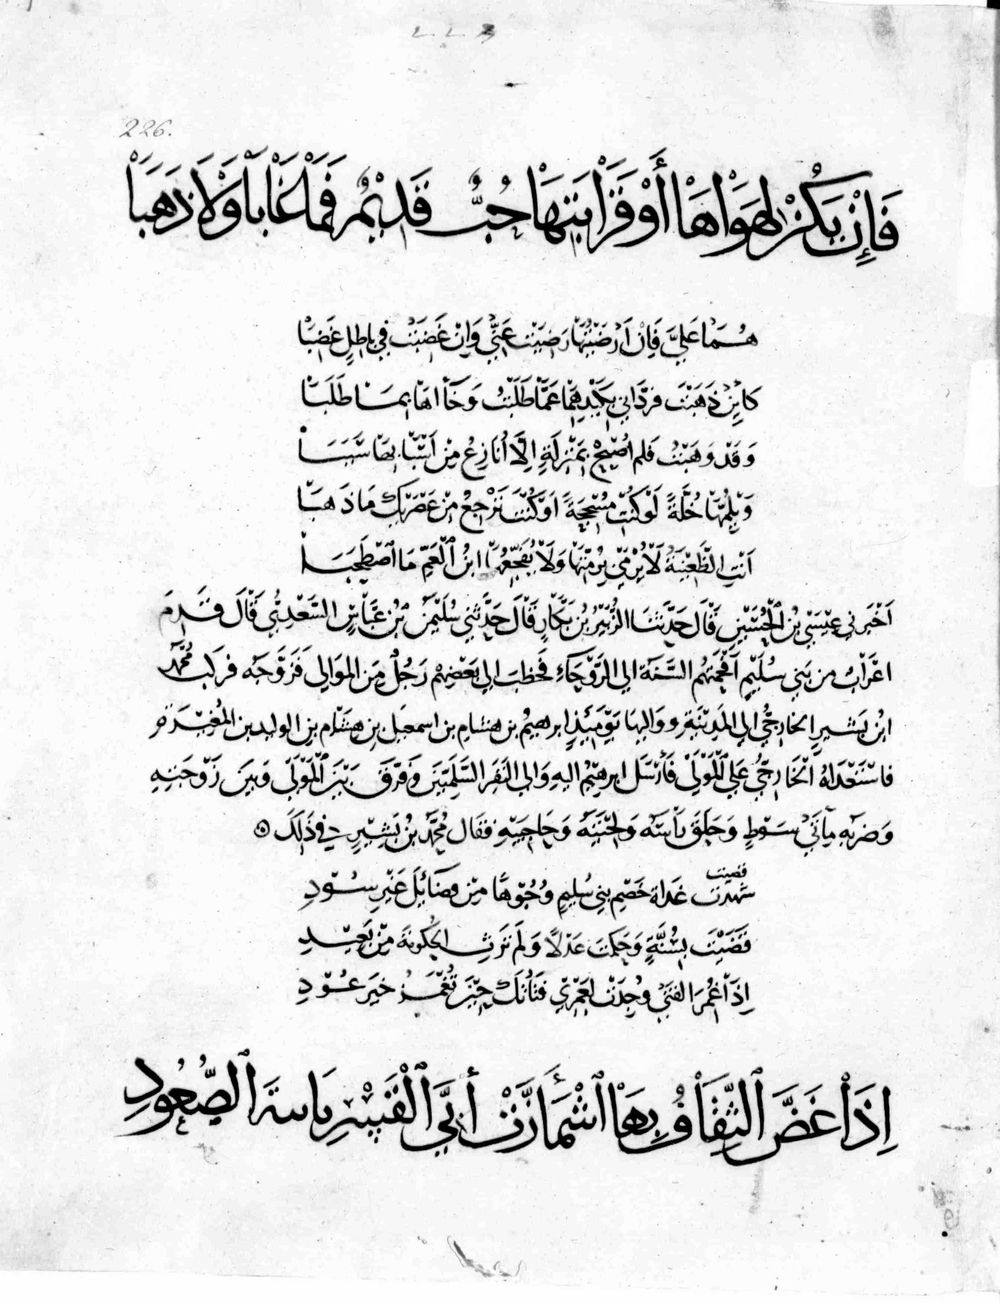 226.
فَإِنْ يَكُنْ لِهَوَاهَا أَوْ قَرَابَتِهَا حُبٌّ قَدِيْمٌ فَمَا غَابَا وَلَا ذَهَبَا
هُمَا عَلَيَّ فَإِنْ أَرْضَيْتُهَا رَضِيَتْ عَنِّي وَإِنْ غَضِبَتْ فِي بَاطِلٍ غَضِبَا
كَأَيِّنْ ذَهَبْتَ فردَّاني بكيدهما عَمَّا طَلَبْتُ وَجَاآهَا بِمَا طَلَبَا
وَقَدْ ذَهَبْتُ فَلَم أُصْبِحْ بِمَنْزِلَةٍ إِلَّا أُنَازِعُ مِنْ أَسْبَابِهَا سَبَبَا
وَيْلُمِّهَا خُلَّةً لَوْ كُنْتِ مُسْجِحَةً أَوْ كُنْتِ تَرْجِعُ مِنْ عَصْرَيْكِ مَا ذَهَبَا
أَنْتِ الظَّعِيْنَةُ لَا يُرْمَى بِرُمَّتِهَا وَلَا يُفَجِّعُهَا ابْنُ الْعَمِّ مَا اصْطَحَبَا
أَخْبَرَنِي عِيْسَى بْنُ الْحُسَيْنِ قَالَ حَدَّثَنَا الزُّبَيْرُ بْنُ بَكَّارٍ قَالَ حَدَّثَنِي سُلَيْمَنُ بْنُ عَيَّاشٍ السَّعْدِيُّ قَالَ قَدِمَ
اعْرَابٌ مِن بَنِي سُلَيْمٍ أَقْحَمَتْهُم السَّنَة الى الرَّوْحَاءِ فَخَطَبَ الى بَعْضِهِمْ رَجُلٌ مِنَ المَوَالِي فَزَوَّجَه فركبَ مُحَمَّدُ
ابْنُ بَشِيرٍ الخَارِجِيُّ الى المَدِيْنَةِ وواليها يَوْمَئِذٍ ابرهيمُ بن هشامِ بن اسمعيل بن هشام بن الوليد بن المُغِيْرَة
فاسْتَعْدَاهُ الْخَارِجِيُّ عَلَى الْمَوْلَى فَأَرْسَلَ ابرهِيْمُ اليهِ وَالى النَفَرِ السُّلَمِيِّيْنَ وَفَرَّقَ بَيْنَ الْمَوْلَى وَبَيْنَ زَوْجَتِهِ
وَضَرَبَه مِائَتَيْ سَوْطٍ وَحَلَقَ رَأْسَهُ وَلِحْيَتَهُ وَحَاجِبَيْهِ فَقَالَ مُحَمَّدُ بْنُ بَشِيْرٍ في ذَلِكَ
قضيت
شَهِدْتَ غَدَاةَ خَصْمِ بَنِي سُلَيمٍ وُجُوْهًا مِنْ قَضَائِكَ غَيْرَ سُوْدِ
قَضَيْتَ بِسُنَّةٍ وَحَكَمْتَ عَدْلًا وَلَمْ تَرِثِ الحُكُومَةَ مِنْ بَعِيْدِ
إِذَا غُمِزَ القَنَا وُجِدَتْ لَعَمْرِي قَنَاتُكَ حِيْنَ تُغْمَزُ خَيْرَ عُوْدِ
إِذَا عَضَّ الثِّقَافُ بِهَا اشْمَأَزَّتْ أَبِيَّ النَّفْسِ بَائِنَةَ الصُّعُودِ